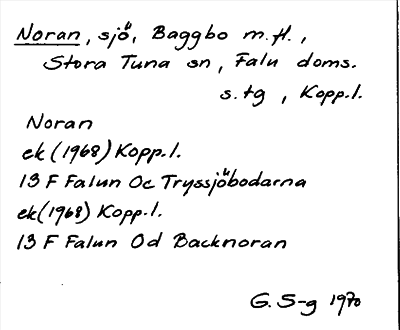 Noran, sjö, Baggbo m.fl.,
Stora Tuna sn, Falu doms.
s.tg, Kopp.l.
Noran
ek (1968) Kopp.l.
13 F Falun Oc Tryssjöbodarna
ek (1968) Kopp.l.
13 F Falun Od Backnoran
G. S-g 1970